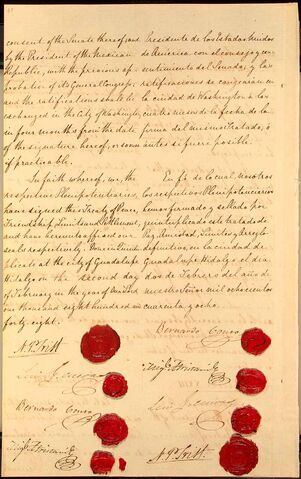 consent of the Senate thereof; and
by the President of the Mexican
Republic, with the previous ap-
probation of its General Congress;
and the ratifications shall be
exchanged in the City of Washington,
in four months from the date
of the signature hereof, or sooner
if practicable.
In faith whereof, we, the
respective Plenipotentiaries,
have signed this Treaty of Peace,
Friendship, Limits and Settlement,
and have hereunto affixed our
seals respectively. Done in Quintu-
plicate at the city of Guadalupe
Hidalgo on the second day
of February in the year of our Lord
one thousand eight hundred and
forty eight.
N. P. Trist
Luis G. Cuevas
Bernardo Couto
Migl. Atristain
Presidente de los Estados Unidos
de America con el consejo y con-
sentimiento del Senado; y las
ratificaciones se cangearán en
la ciudad de Washington a los
cuatro meses de la fecha de la
firma del mismo Tratado, ó
antes si fuere posible.
En fé de lo cual, nosotros
los respectivos Plenipotenciarios
hemos firmado y sellado por
quintuplicado este tratado de
Paz, Amistad, Límites y Arreglo
definitivo, en la ciudad de
Guadalupe Hidalgo el dia
dos de Febrero del año de
nuestro Señor mil ochocientos
cuarenta y ocho
Bernardo Couto
Migl. Atristain
Luis G. Cuevas
N. P. Trist